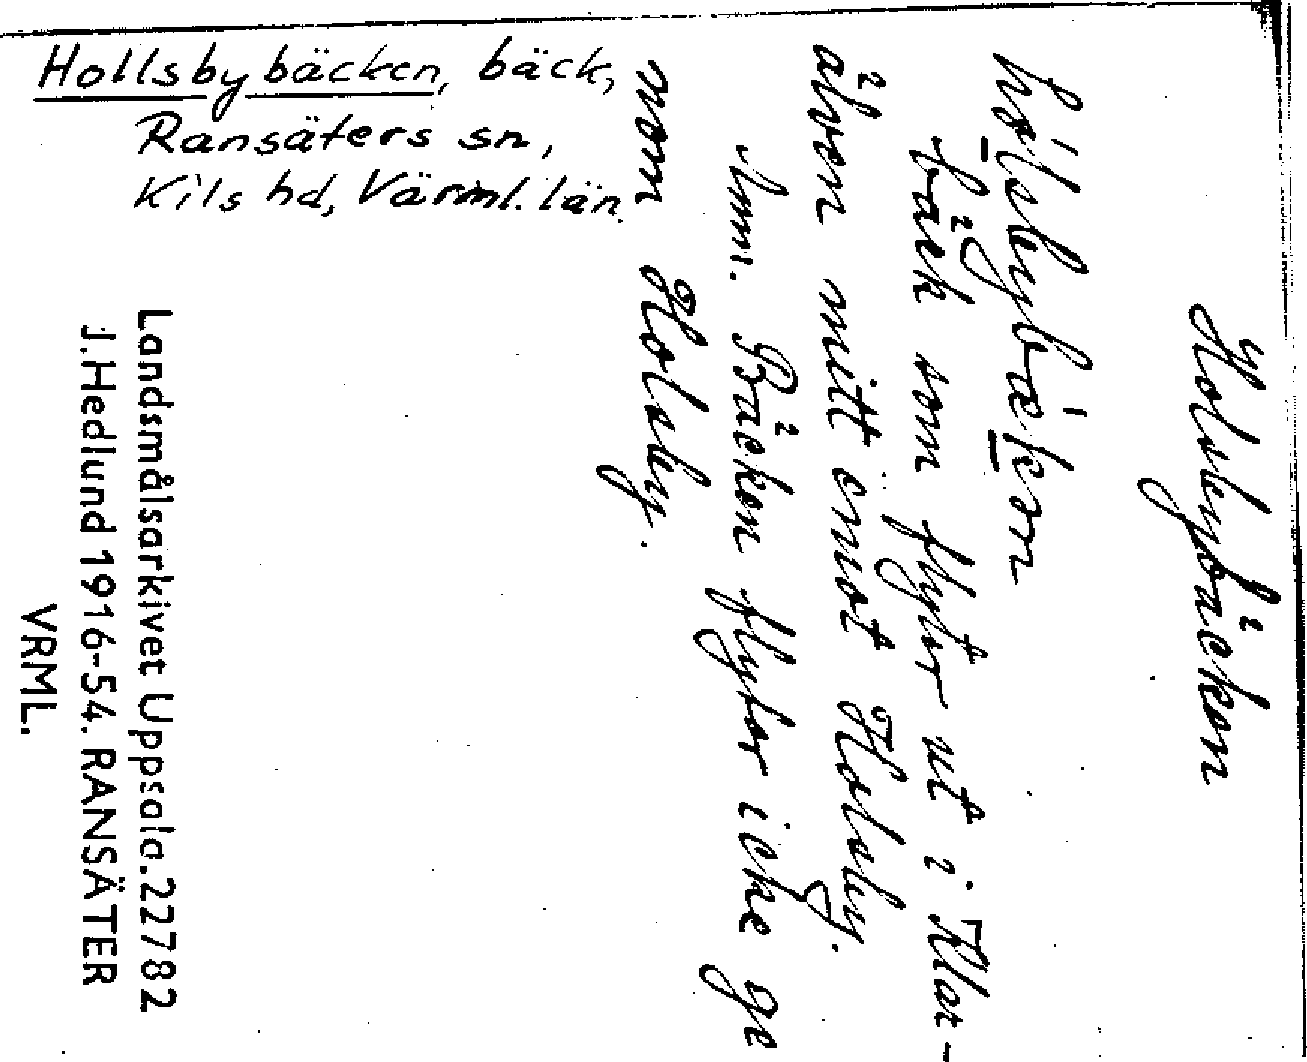 Hollsbybäcken, bäck,
Ransäters sn,
Kils hd, Värml. län.
Holsbybäcken
bäck som flyter ut i Klar-
älven mitt emot Holsby.
Anm. Bäcken flyter icke ge
nom Holsby.
Landsmålsarkivet Uppsala. 22782
J. Hedlund 1916-54. RANSÄTER
VRML.